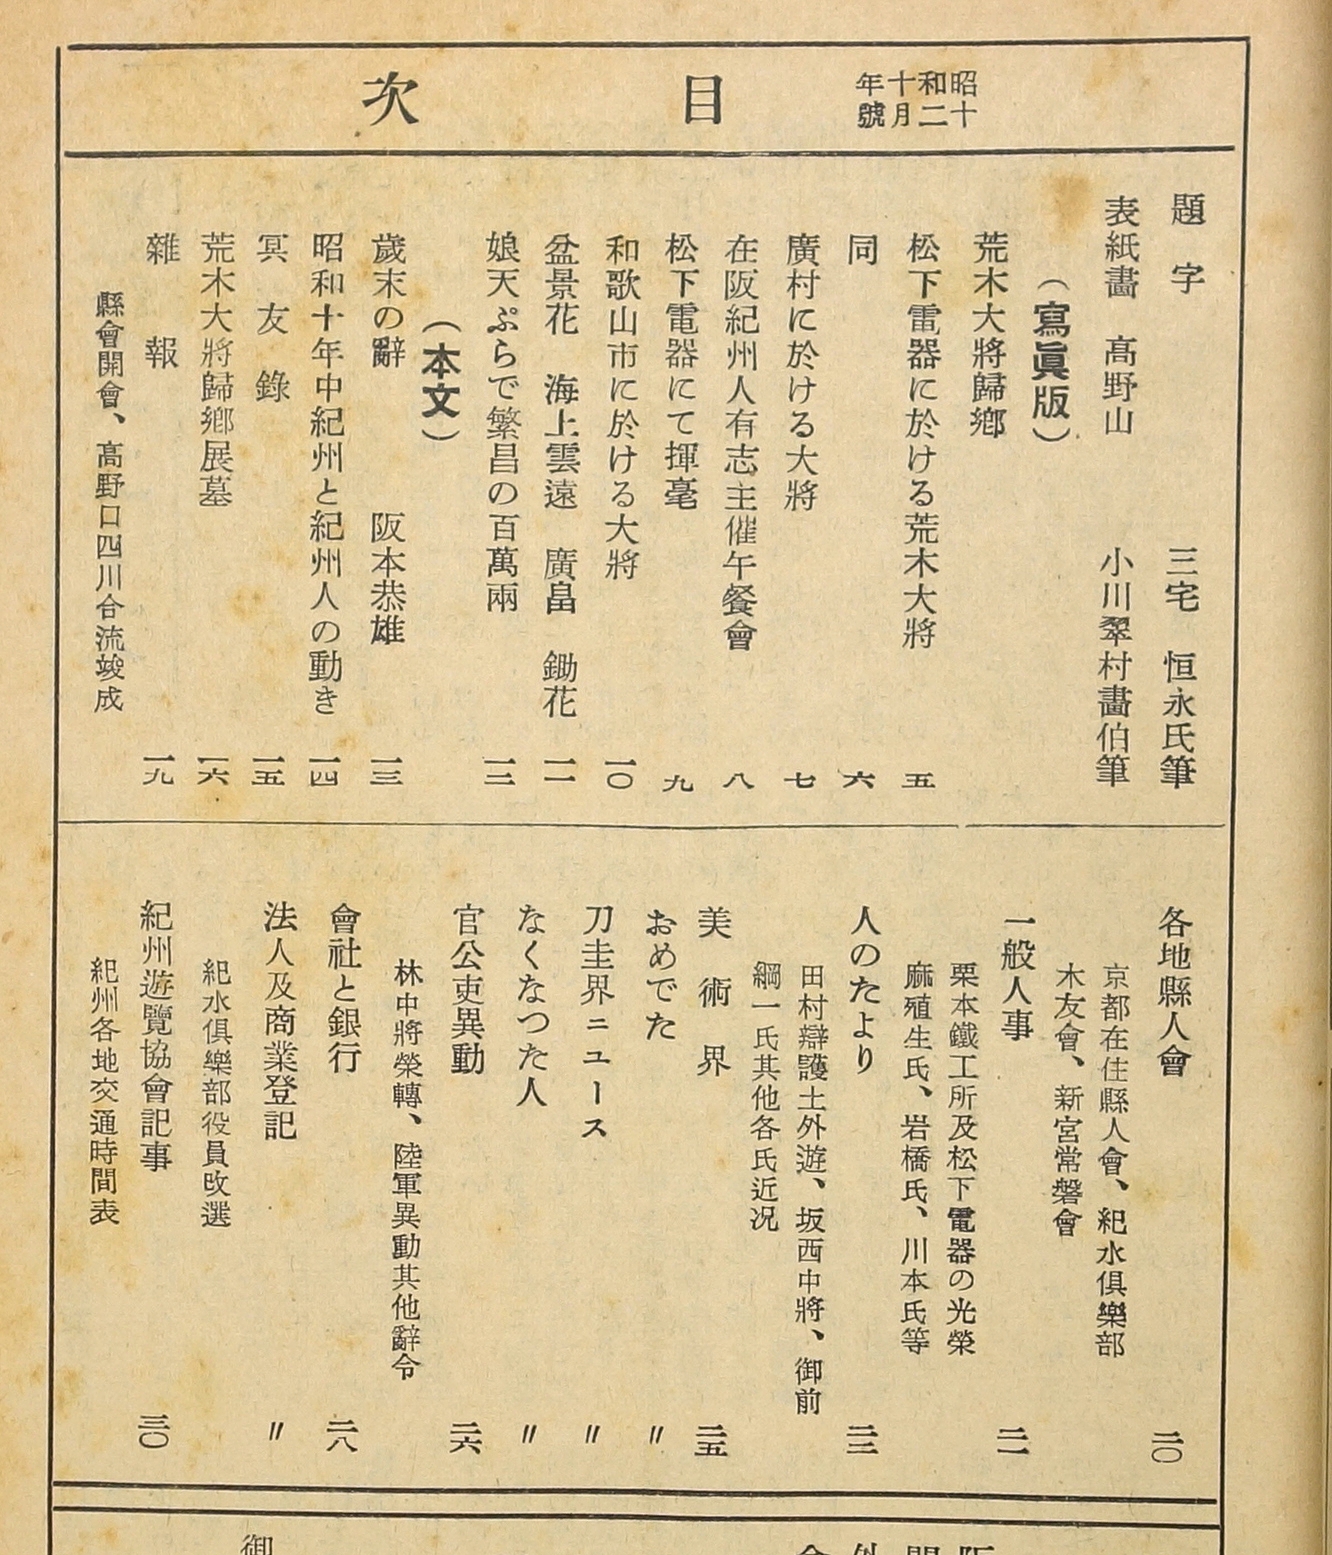 昭和十年
十二月號
目次
題字　三宅　恒永氏筆
表紙畫　高野山　小川翠村畫伯筆
（寫眞版）
荒木大將歸鄕
松下電器に於ける荒木大將　五
同　六
廣村に於ける大將　七
在阪紀州人有志主催午餐會　八
松下電器にて揮毫　九
和歌山市に於ける大將　一〇
盆景花　海上雲遠　廣畠　鋤花　一一
娘天ぷらで繁昌の百萬兩　一二
（本文）
歲末の辭　阪本恭雄　一三
昭和十年中紀州と紀州人の動き　一四
冥友錄　一五
荒木大將歸鄕展墓　一六
雜報　一九
縣會開會、高野口四川合流竣成
各地縣人會　二〇
京都在住縣人會、紀水俱樂部
木友會、新宮常磐會
一般人事　二一
栗本鐵工所及松下電器の光榮
麻殖生氏、岩橋氏、川本氏等
人のたより　二三
田村辯護士外遊、坂西中將、御前
綱一氏其他各氏近况
美術界　二五
おめでた　〃
刀圭界ニュース　〃
なくなつた人　〃
官公吏異動　二六
林中將榮轉、陸軍異動其他辭令
會社と銀行　二八
法人及商業登記　〃
紀水俱樂部役員改選
紀州遊覽協會記事　三〇
紀州各地交通時間表